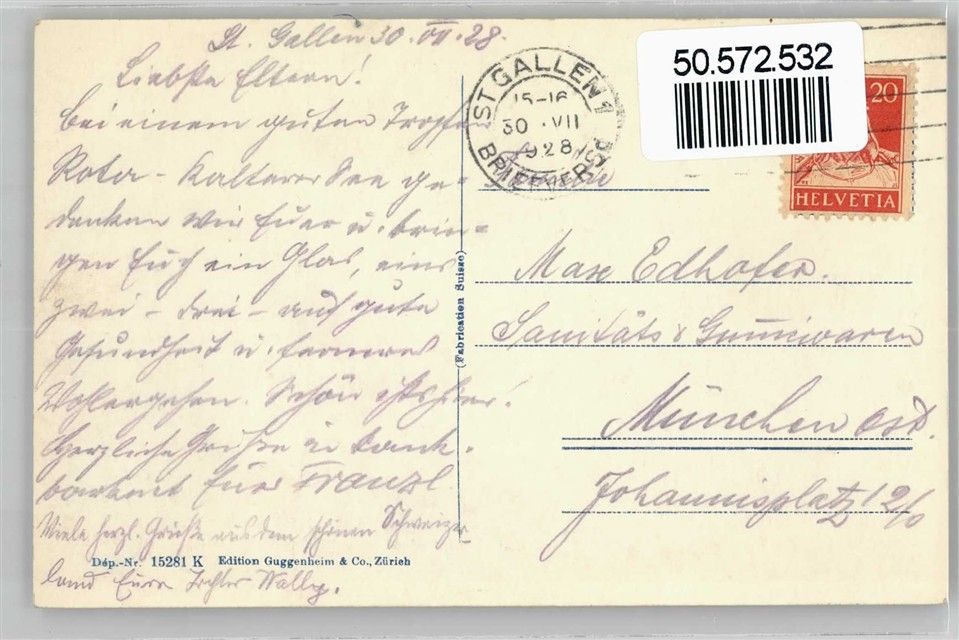 St. Gallen 30. VII. 28.
Liebste Eltern!
Bei einem guten Tropfen
Roter - Kalterer See ge-
denken wir Euer u. brin-
gen Euch ein Glas, eins
zwei - drei - auf gute
Gesundheit u. ferneres
Wohlergehen. Schön ists hier!
Herzliche Grüße in Dank-
barkeit Euer Franzl
Viele herzl. Grüße aus dem schönen Schweizer
land Eure Tochter Wally.
Dép.-Nr. 15281 K Edition Guggenheim & Co., Zürich
(Fabrication Suisse)
ST GALLEN 1
15-16
30 . VII
1928
BRIEFVERSD
50.572.532
20
HELVETIA
Max Edhofer.
Sanitäts & Gummiwaren
München Ost.
Johannisplatz 12/0